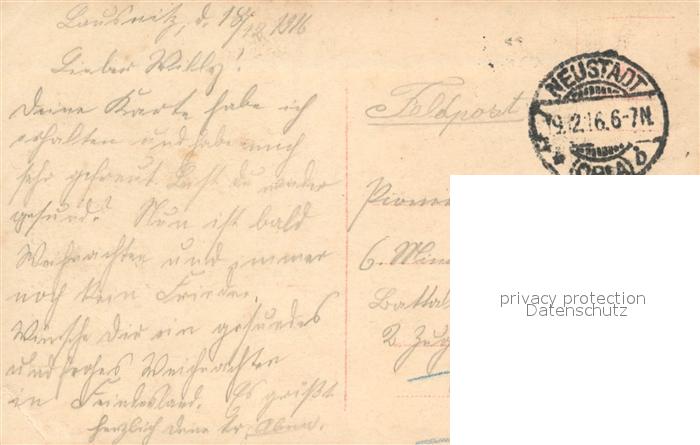 Lausnitz, d. 18/12 1916
Lieber Willy!
Deine Karte habe ich
erhalten und habe mich
sehr gefreut bist du wieder
gesund? Nun ist bald
Weihnachten und immer
noch kein Frieden.
Wünsche Dir ein gesundes
und frohes Weihnachten
in Feindesland. Es grüßt
herzlich deine
Feldpost
NEUSTADT
9.12.16.6-7N.
(ORLA) b
Pionier
6. Min
Battal
2. Zug
privacy protection
Datenschutz